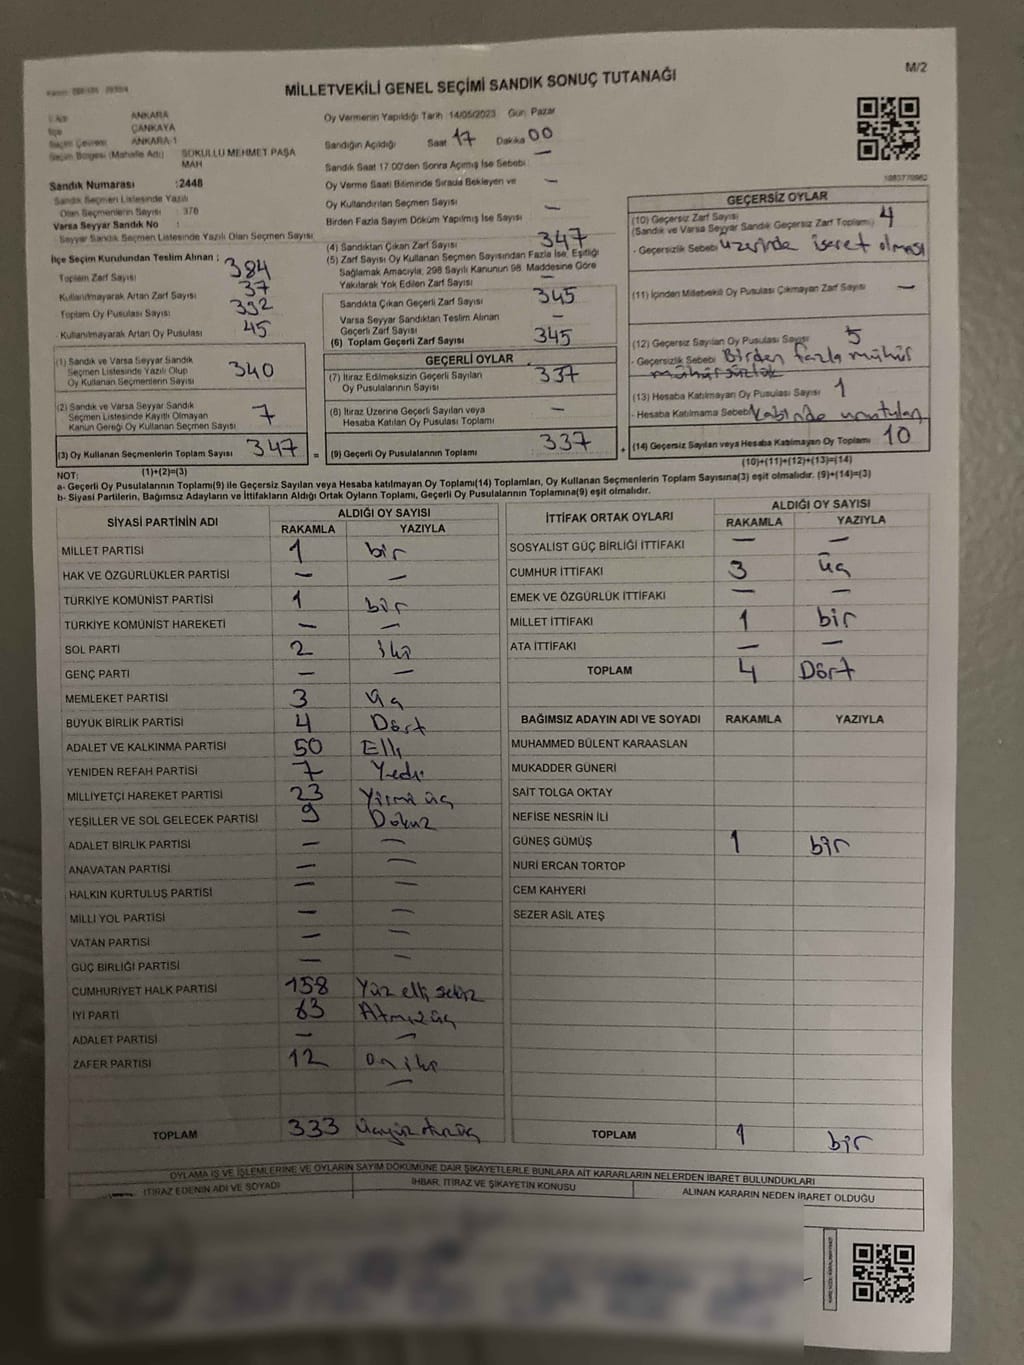 MİLLETVEKİLİ GENEL SEÇİMİ SANDIK SONUÇ TUTANAĞI
M/2
ANKARA
ÇANKAYA
ANKARA-1
Seçim Bölgesi (Mahalle Adı) SOKULLU MEHMET PAŞA
MAH
Sandık Numarası :2448
Sandık Seçmen Listesinde Yazılı
Olan Seçmenlerin Sayısı : 376
Varsa Seyyar Sandık No :
Seyyar Sandık Seçmen Listesinde Yazılı Olan Seçmen Sayısı
İlçe Seçim Kurulundan Teslim Alınan :
Toplam Zarf Sayısı 384
Kullanılmayarak Artan Zarf Sayısı 37
Toplam Oy Pusulası Sayısı 392
Kullanılmayarak Artan Oy Pusulası 45
(1) Sandık ve Varsa Seyyar Sandık
Seçmen Listesinde Yazılı Olup
Oy Kullanan Seçmenlerin Sayısı 340
(2) Sandık ve Varsa Seyyar Sandık
Seçmen Listesinde Kayıtlı Olmayan
Kanun Gereği Oy Kullanan Seçmen Sayısı 7
(3) Oy Kullanan Seçmenlerin Toplam Sayısı 347
(1)+(2)=(3)
Oy Vermenin Yapıldığı Tarih 14/05/2023 Gün Pazar
Sandığın Açıldığı Saat 17 Dakika 00
Sandık Saat 17:00'den Sonra Açılmış İse Sebebi —
Oy Verme Saati Bitiminde Sırada Bekleyen ve —
Oy Kullandırılan Seçmen Sayısı
Birden Fazla Sayım Döküm Yapılmış İse Sayısı —
(4) Sandıktan Çıkan Zarf Sayısı 347
(5) Zarf Sayısı Oy Kullanan Seçmen Sayısından Fazla İse, Eşitliği
Sağlamak Amacıyla, 298 Sayılı Kanunun 98. Maddesine Göre
Yakılarak Yok Edilen Zarf Sayısı —
Sandıkta Çıkan Geçerli Zarf Sayısı 345
Varsa Seyyar Sandıktan Teslim Alınan
Geçerli Zarf Sayısı —
(6) Toplam Geçerli Zarf Sayısı 345
GEÇERLİ OYLAR
(7) İtiraz Edilmeksizin Geçerli Sayılan
Oy Pusulalarının Sayısı 337
(8) İtiraz Üzerine Geçerli Sayılan veya
Hesaba Katılan Oy Pusulası Toplamı —
= (9) Geçerli Oy Pusulalarının Toplamı 337
GEÇERSİZ OYLAR
(10) Geçersiz Zarf Sayısı
(Sandık ve Varsa Seyyar Sandık Geçersiz Zarf Toplamı) 4
- Geçersizlik Sebebi üzerinde işaret olması
(11) İçinden Milletvekili Oy Pusulası Çıkmayan Zarf Sayısı —
(12) Geçersiz Sayılan Oy Pusulası Sayısı 5
- Geçersizlik Sebebi Birden fazla mühür
(13) Hesaba Katılmayan Oy Pusulası Sayısı 1
- Hesaba Katılmama Sebebi Kabinde unutulan
+ (14) Geçersiz Sayılan veya Hesaba Katılmayan Oy Toplamı 10
(10)+(11)+(12)+(13)=(14)
NOT:
a- Geçerli Oy Pusulalarının Toplamı(9) ile Geçersiz Sayılan veya Hesaba katılmayan Oy Toplamı(14) Toplamları, Oy Kullanan Seçmenlerin Toplam Sayısına(3) eşit olmalıdır. (9)+(14)=(3)
b- Siyasi Partilerin, Bağımsız Adayların ve İttifakların Aldığı Ortak Oyların Toplamı, Geçerli Oy Pusulalarının Toplamına(9) eşit olmalıdır.
SİYASİ PARTİNİN ADI ALDIĞI OY SAYISI
RAKAMLA YAZIYLA
MİLLET PARTİSİ 1 bir
HAK VE ÖZGÜRLÜKLER PARTİSİ — —
TÜRKİYE KOMÜNİST PARTİSİ 1 bir
TÜRKİYE KOMÜNİST HAREKETİ — —
SOL PARTİ 2 iki
GENÇ PARTİ — —
MEMLEKET PARTİSİ 3 üç
BÜYÜK BİRLİK PARTİSİ 4 Dört
ADALET VE KALKINMA PARTİSİ 50 Elli
YENİDEN REFAH PARTİSİ 7 Yedi
MİLLİYETÇİ HAREKET PARTİSİ 23 Yirmi üç
YEŞİLLER VE SOL GELECEK PARTİSİ 9 Dokuz
ADALET BİRLİK PARTİSİ — —
ANAVATAN PARTİSİ — —
HALKIN KURTULUŞ PARTİSİ — —
MİLLİ YOL PARTİSİ — —
VATAN PARTİSİ — —
GÜÇ BİRLİĞİ PARTİSİ — —
CUMHURİYET HALK PARTİSİ 158 Yüz elli sekiz
İYİ PARTİ 63 Atmış üç
ADALET PARTİSİ — —
ZAFER PARTİSİ 12 on iki
—
TOPLAM 333 üçyüz otuz üç
İTTİFAK ORTAK OYLARI ALDIĞI OY SAYISI
RAKAMLA YAZIYLA
SOSYALİST GÜÇ BİRLİĞİ İTTİFAKI — —
CUMHUR İTTİFAKI 3 üç
EMEK VE ÖZGÜRLÜK İTTİFAKI — —
MİLLET İTTİFAKI 1 bir
ATA İTTİFAKI — —
TOPLAM 4 Dört
BAĞIMSIZ ADAYIN ADI VE SOYADI RAKAMLA YAZIYLA
MUHAMMED BÜLENT KARAASLAN
MUKADDER GÜNERİ
SAİT TOLGA OKTAY
NEFİSE NESRİN İLİ
GÜNEŞ GÜMÜŞ 1 bir
NURİ ERCAN TORTOP
CEM KAHYERİ
SEZER ASİL ATEŞ
TOPLAM 1 bir
OYLAMA İŞ VE İŞLEMLERİNE VE OYLARIN SAYIM DÖKÜMÜNE DAİR ŞİKAYETLERLE BUNLARA AİT KARARLARIN NELERDEN İBARET BULUNDUKLARI
İTİRAZ EDENİN ADI VE SOYADI İHBAR, İTİRAZ VE ŞİKAYETİN KONUSU ALINAN KARARIN NEDEN İBARET OLDUĞU